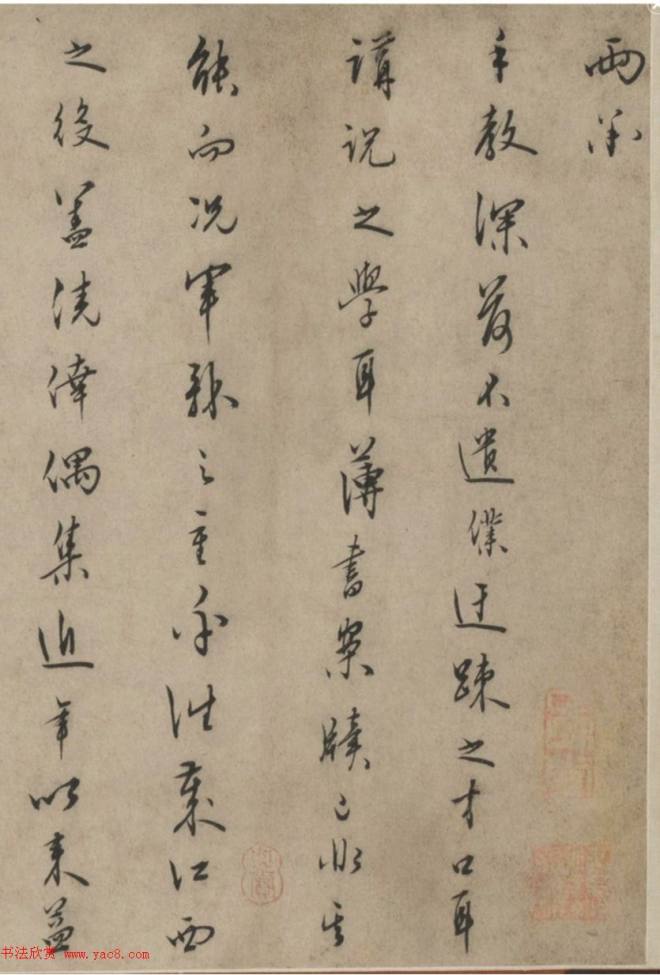 兩承
手教深荷不遺僕迂踈之才口耳
講説之學耳薄書案牘已非其
能而况軍旅之重乎往歲江西
之後蓋僥倖偶集近年以來益
书法欣赏 www.yac8.com